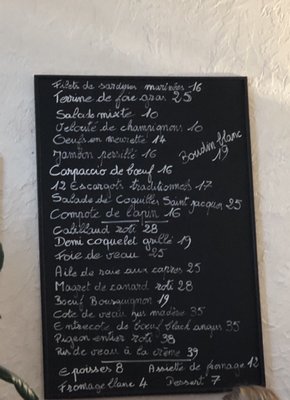 Filets de sardines marinées 16
Terrine de foie gras 25
Salade mixte 10
Velouté de champignons 10
Oeufs en meurette 14
Jambon persillé 16
Boudin blanc 19
Carpaccio de bœuf 16
12 Escargots traditionnels 17
Salade de Coquilles Saint jacques 25
Compote de lapin 16
rôti 28
Demi coquelet grillé 19
Foie de veau 25
Aile de raie aux capres 25
Magret de canard rôti 28
Boeuf Bourguignon 19
Cote de veau au madère 35
Entrecote de bœuf black angus 35
Pigeon entier roti 38
Ris de veau à la crème 39
Epoisses 8 Assiette de fromage 12
Fromage blanc 4 Dessert 7